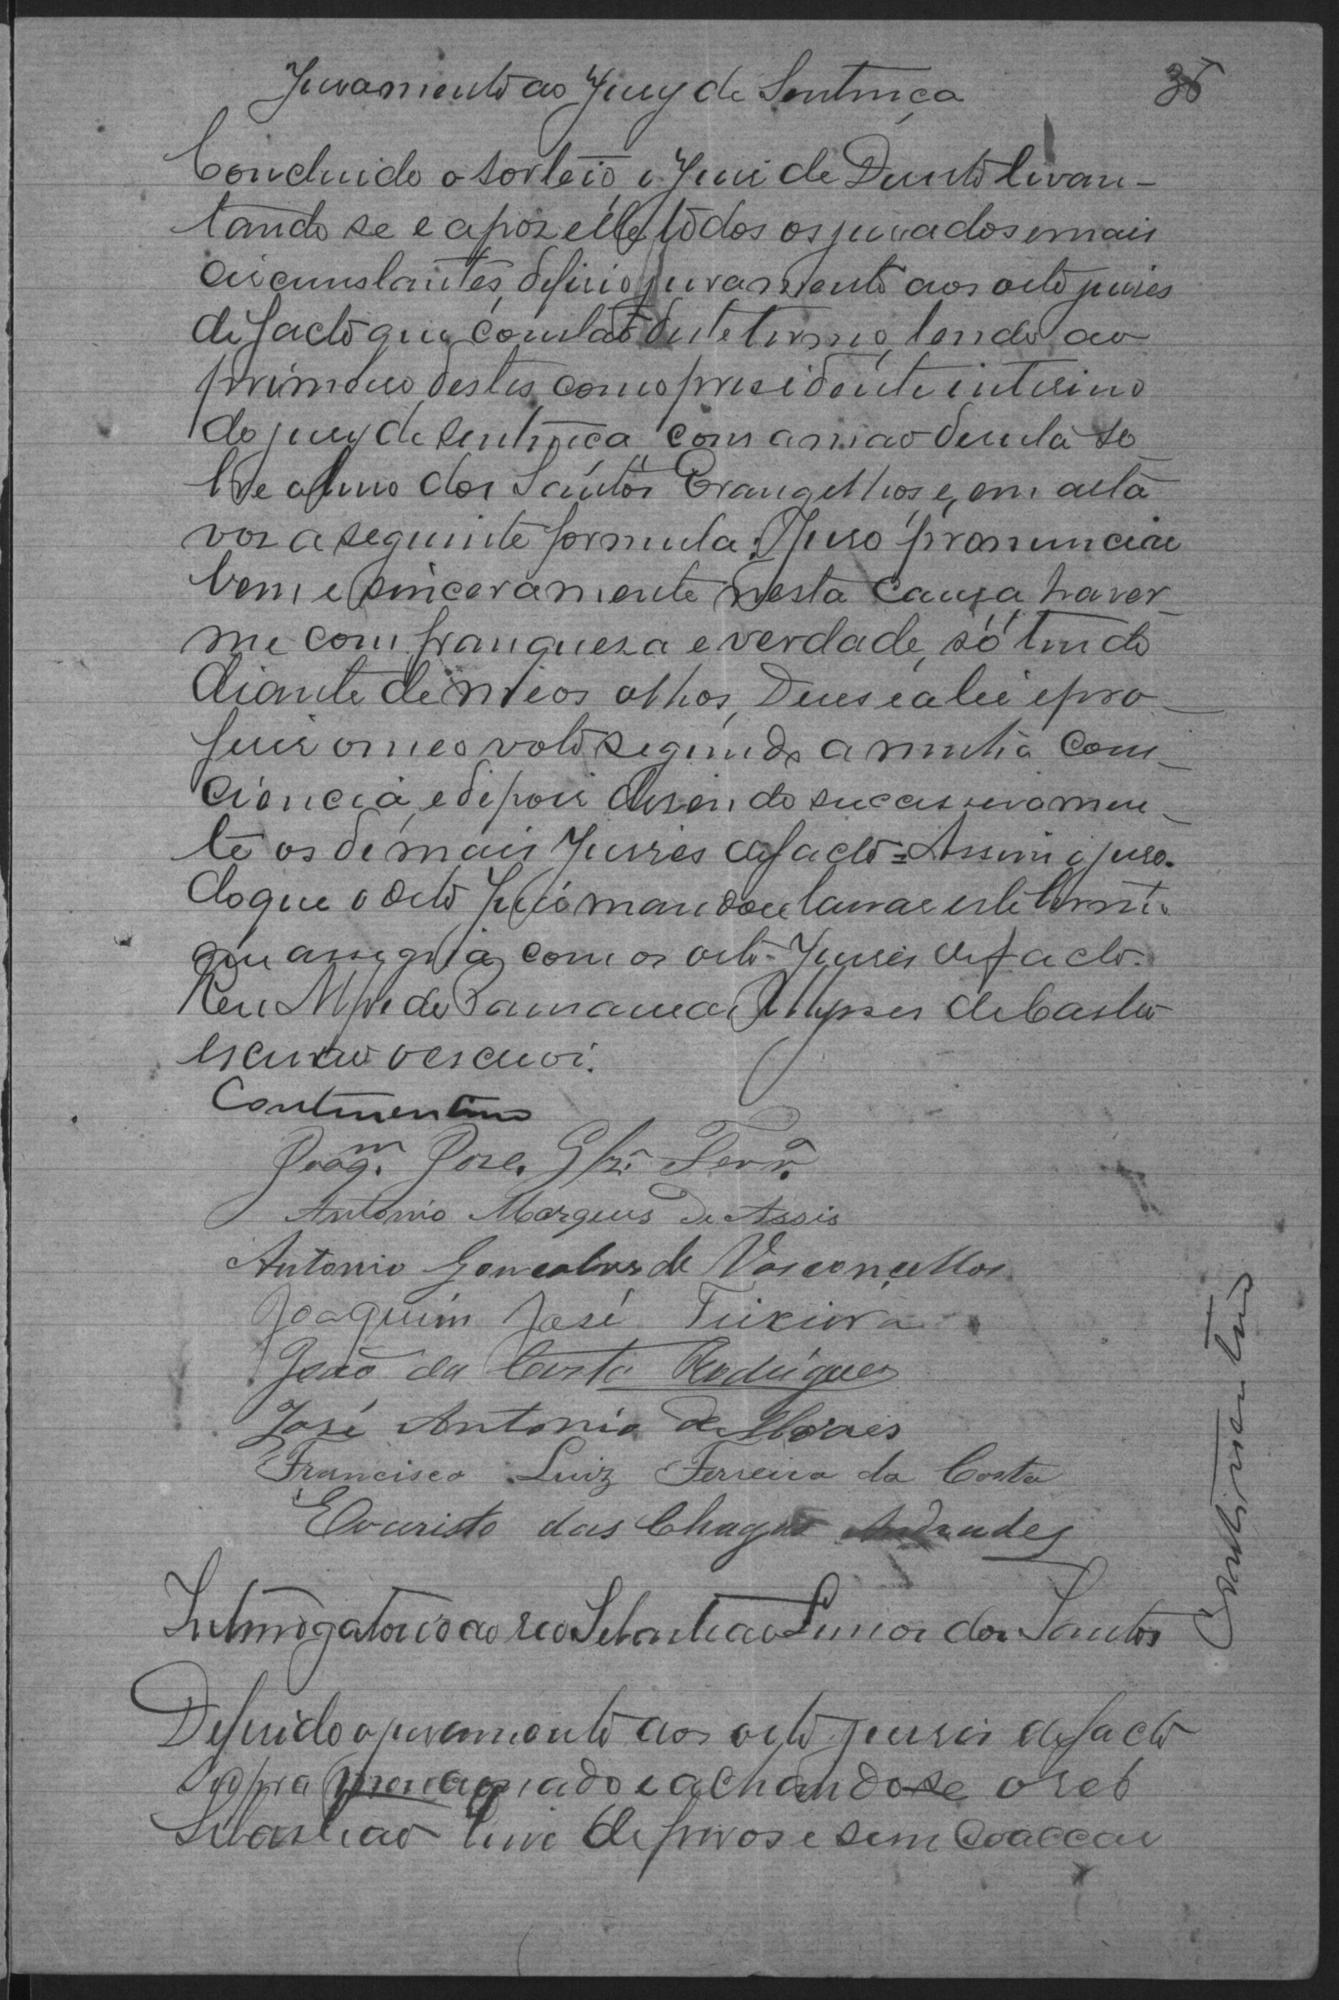 Juramento ao Jury de Sentença
35
Concluido o sorteio, o Juiz de Direito levan-
tando se e apoz elle todos os jurados e mais
circunstantes, deferio juramento aos oito juizes
de facto que constão deste termo, lendo ao
primeiro destes como presidente interino
do jury de sentença com a mão direita so
bre o livro dos Santos Evangelhos e, em alta
voz a seguinte formula: Juro pronunciar
bem e sinceramente nesta causa, haver-
me com franqueza e verdade, só tendo
diante de meos olhos, Deus e a lei e pro-
ferir o meo voto segundo a minha cons-
ciencia, e depois dizendo sucessivamen-
te os demais Juizes de facto = Assim o juro.
do que o dito Juiz mandou lavrar este termo
que assigna com os oito Juizes de facto.
Eu de Ulysses de Castro
escrivão o escrevi.
Continentino
Joaqm. José. Glz. Ferra.
Antonio Marques de Assis
Antonio Gonçalves de Vasconcellos
Joaquim José Teixeira
João da Costa Rodrigues
José Antonio de Moraes
Francisco Luiz Ferreira da Costa
Evaristo das Chagas Andrades
Continentino
Interrogatorio ao reo Sebastião Simões dos Santos
Deferido o juramento aos oito juizes de facto
supra e achando-se o reo
Sebastião livre de ferros e sem coacção